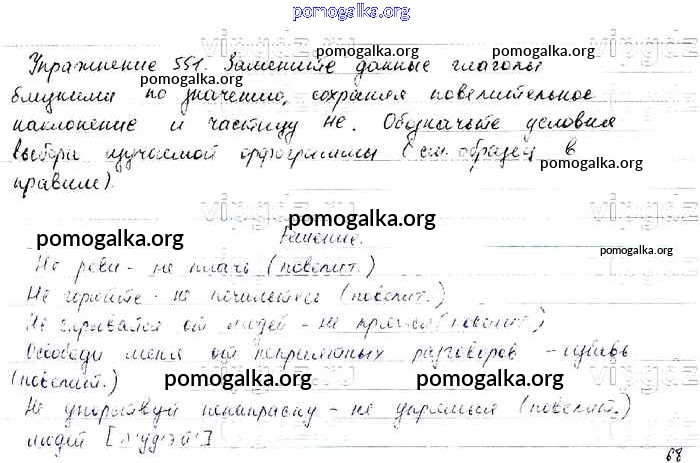 pomogalka.org
Упражнение 551. Замените данные глаголы
pomogalka.org
близкими по значению, сохраняя повелительное
pomogalka.org
наклонение и частицу не. Обозначьте условия
выбора изучаемой орфограммы (см. образец в
pomogalka.org
правиле).
pomogalka.org
pomogalka.org
Решение.
pomogalka.org
Не реви - не плачь (повелит.)
Не горюйте - не печальтесь (повелит.)
Не скрывайся от людей - не прячься (повелит.)
Освободи меня от неприятных разговоров - избавь
(повелит.)
pomogalka.org
pomogalka.org
Не упорствуй понапрасну - не упрямься (повелит.)
людей
68